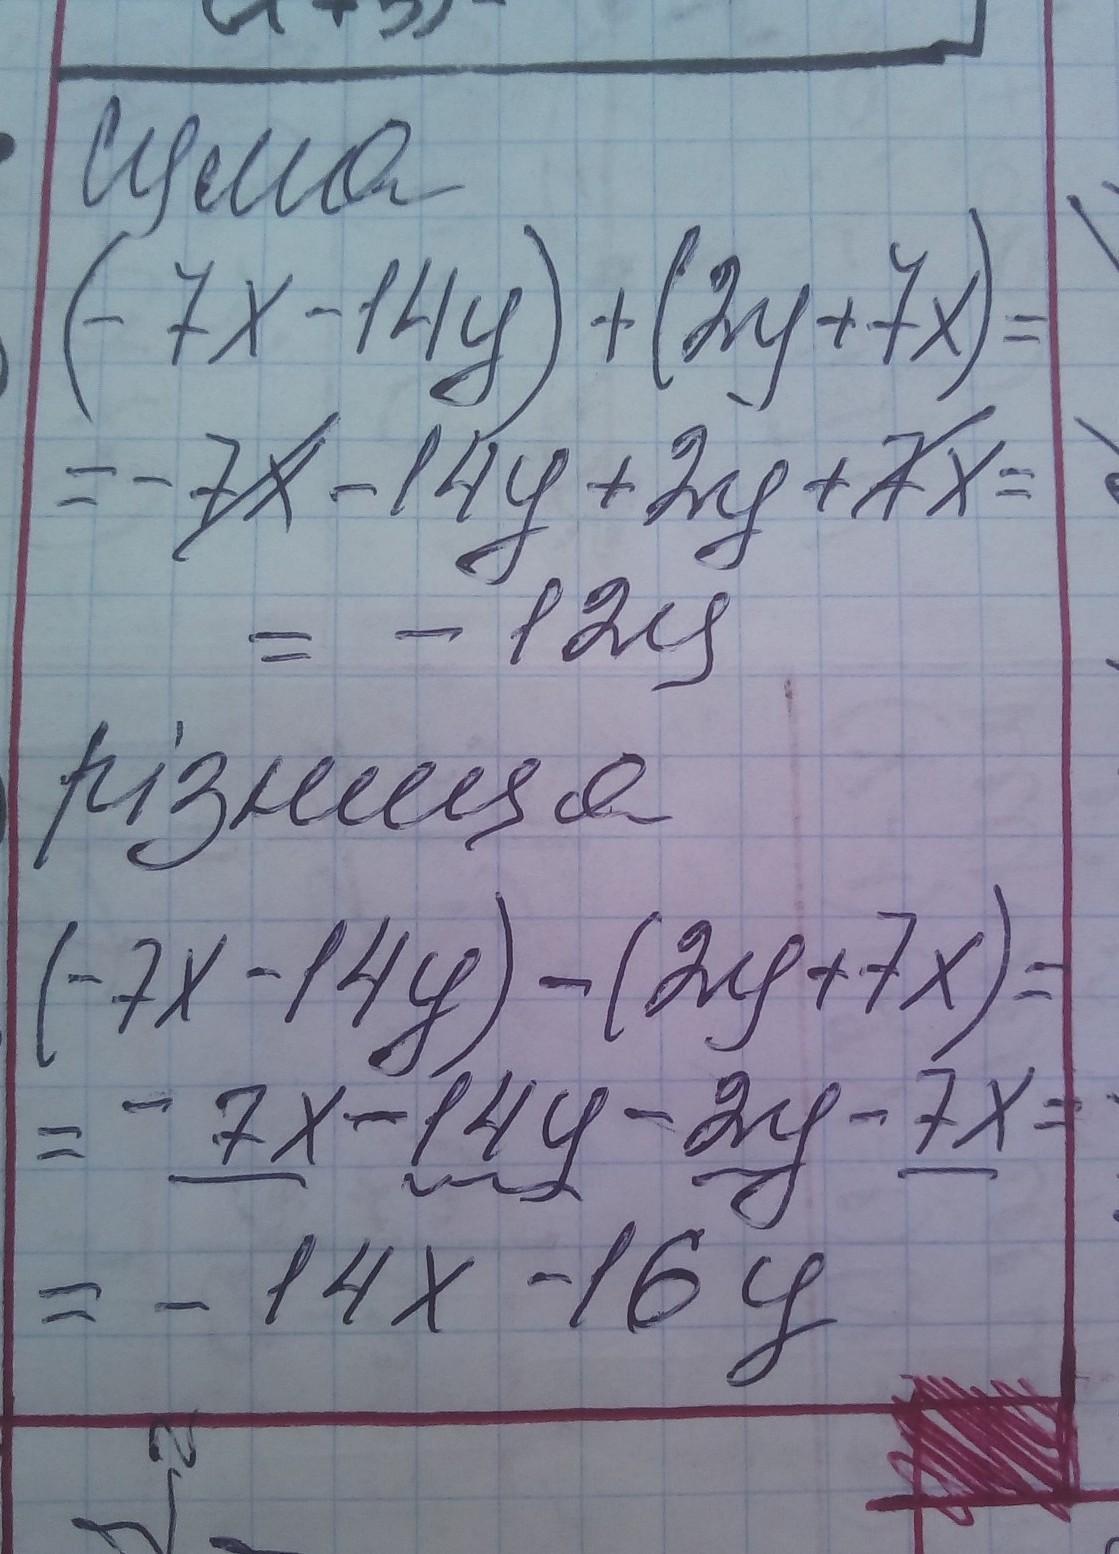 сума
(-7x-14y)+(2y+7x)=
=-7x-14y+2y+7x=
= -12y
різниця
(-7x-14y)-(2y+7x)=
= -7x-14y-2y-7x=
= -14x-16y